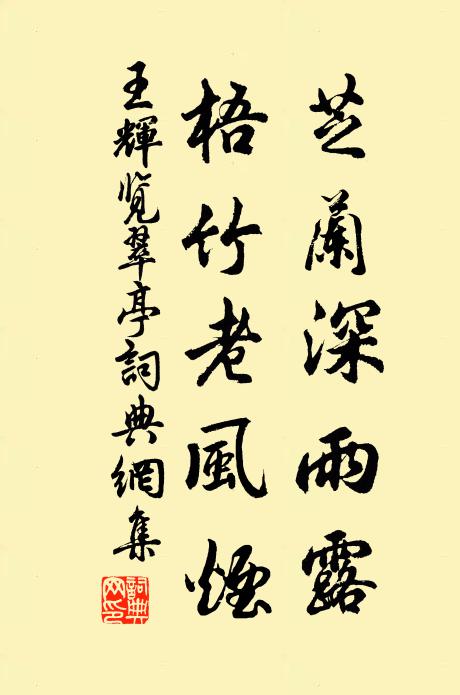 芝蘭深雨露
梧竹老風煙
王輝覽翠亭詞典網集
詞典網印